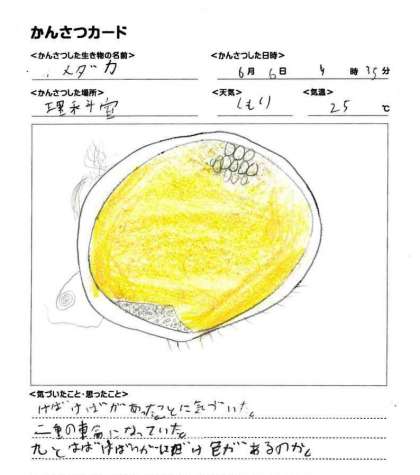 かんさつカード
<かんさつした生き物の名前> <かんさつした日時>
メダカ 6月 6日 4時 35分
<かんさつした場所> <天気> <気温>
理科室 くもり 25℃
<気づいたこと・思ったこと>
けばけばがあったことに気づいた。
二重の東高になっていた。
色があるのか。